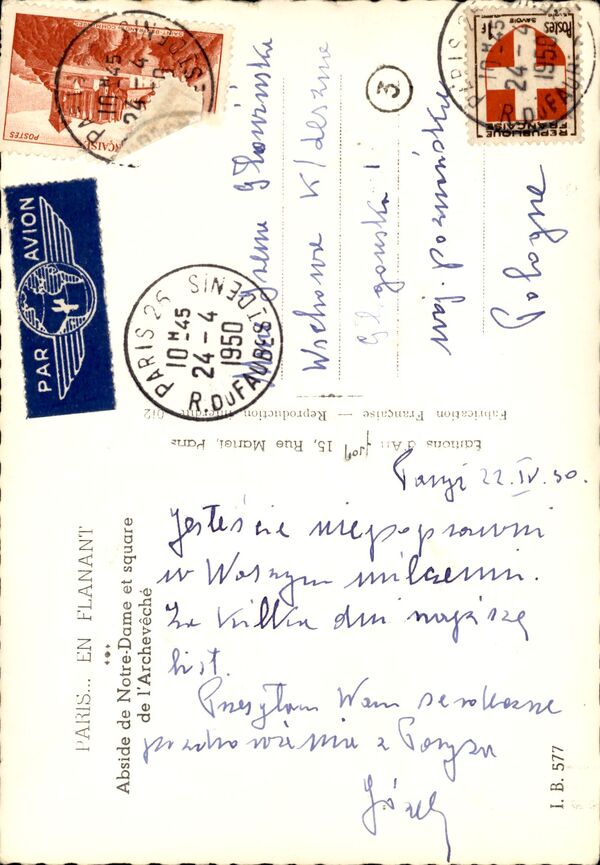 PARIS... EN FLANANT
Abside de Notre-Dame et square
de l'Archevêché
I. B. 577
Paryż 22. IV. 50.
Jesteście niepoprawni
w Waszym milczeniu.
Za kilka dni napiszę
list.
Przesyłam Wam serdeczne
pozdrowienia z Paryża
Józef
Éditions d'Art 15, Rue Martel, Paris
Fabrication Française — Reproduction interdite
PAR AVION
PARIS 26
10 H 45
24 - 4
1950
R. DU FAUBG ST DENIS
Irena Głowińska
Wschowa k/Leszna
3
Pologne
POSTES
Postes
1F
SAVOIE
RÉPUBLIQUE
FRANÇAISE
PARIS 26
10 H 45
24 - 4
1950
R. DU FAUB
PARIS
10 H 45
24 - 4